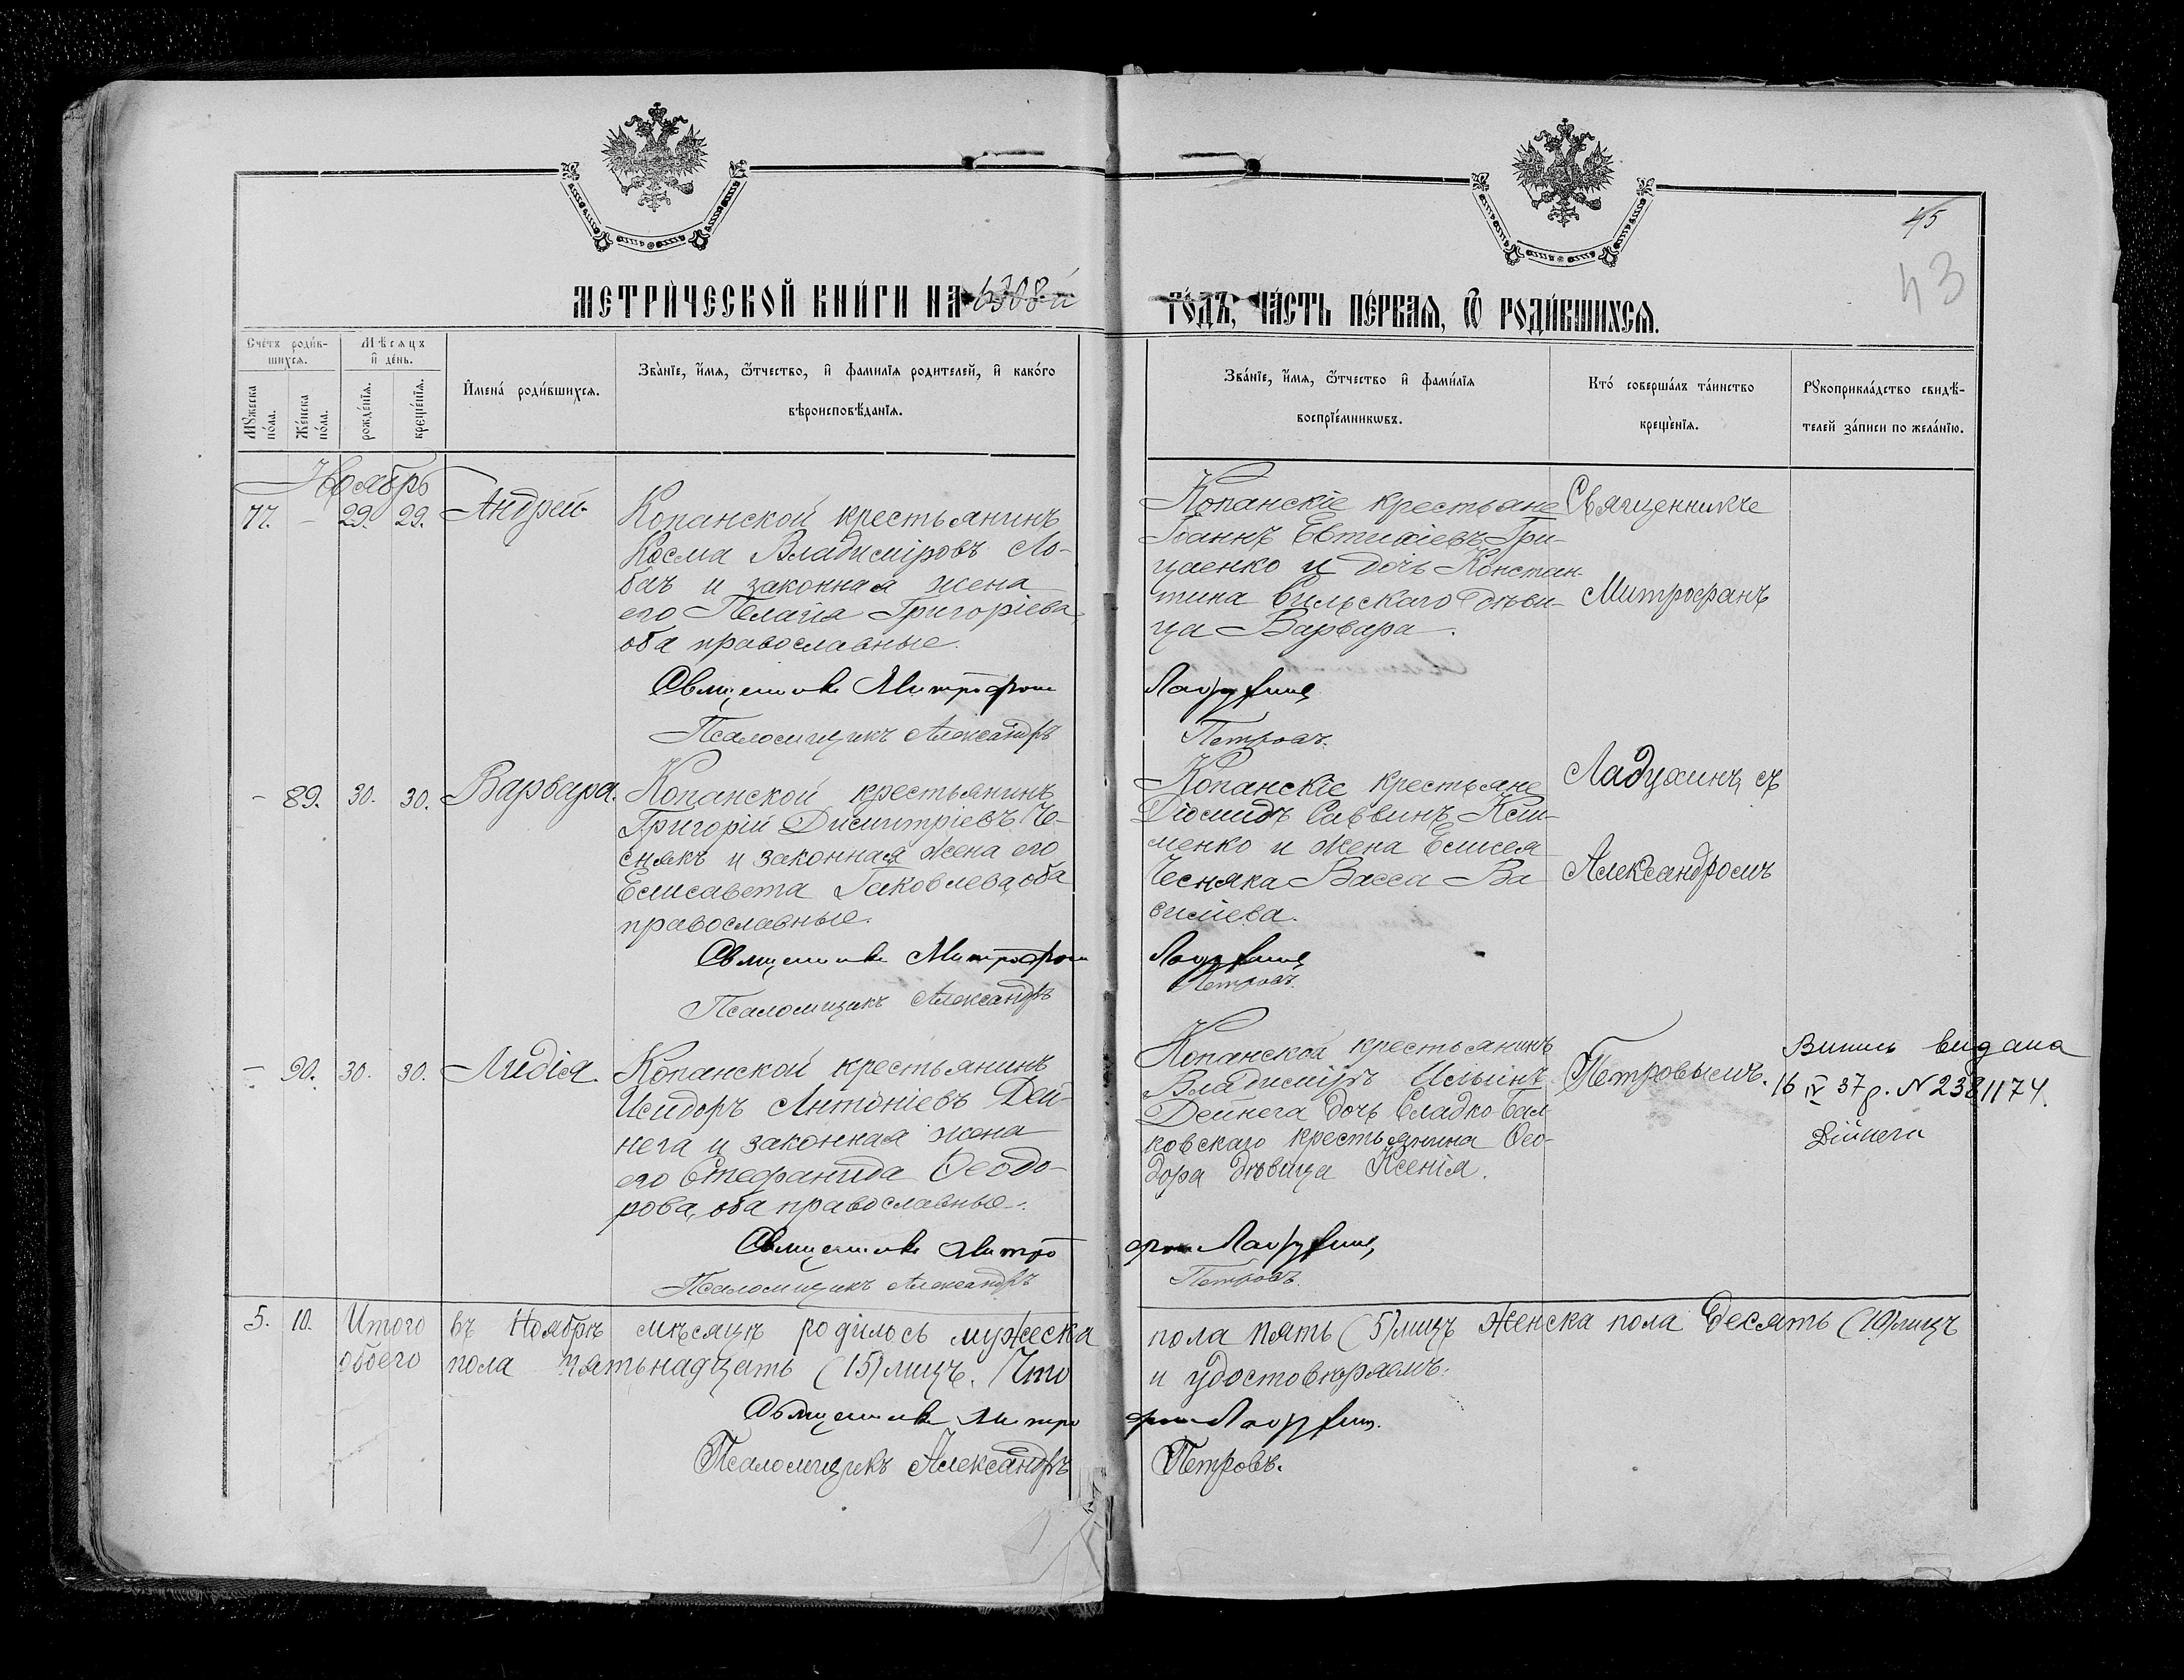 45
43
МЕТРИ́ЧЕСКОЙ КНИ́ГИ НА
ГО́ДЪ, ЧА́СТЬ ПЕ́РВАЯ, Ѿ РОДИ́ВШИХСЯ.
Сче́тъ роди́в-
шихся.
Мѣ́сяцъ
и҆ де́нь.
Мꙋ́жеска
по́ла.
Же́нска
по́ла.
рожде́нїя.
креще́нїя.
И҆мена̀ роди́вшихся.
Зва́нїе, и҆́мя, ѻ҆́тчество, и҆ фамилїя родителей, и҆ како́го
вѣроисповѣ́данїя.
Зва́нїе, и҆́мя, ѻ҆́тчество и҆ фами́лїя
воспрїе́мникѡвъ.
Кто́ соверша́лъ та́инство
креще́нїя.
Рꙋкоприкла́дство свидѣ́-
телей за́писи по жела́нїю.
Ноябрь
77. - 29. 29. Андрей.
Копанской крестьянинъ
Косма Владиміровъ Ло-
бачъ и законная жена
его Пелагія Григоріева
оба православные.
Священникъ Митрофанъ
Псаломщикъ Александръ
Копанскіе крестьяне
Іоаннъ Евтихіевъ Гри-
цаенко и дочь Констан-
тина Сильскаго дѣви-
ца Варвара.
Ладухинъ
Петровъ.
Священникъ
Митрофанъ
- 89. 30. 30. Варвара.
Копанской крестьянинъ
Григорій Димитріевъ Че-
снякъ и законная жена его
Елисавета Іаковлева, оба
православные.
Священникъ Митрофанъ
Псаломщикъ Александръ
Копанскіе крестьяне
Діомидъ Саввинъ Кли-
менко и жена Елисея
Чесняка Васса Ва-
силіева.
Ладухинъ
Петровъ.
Ладухинъ съ
Александромъ
- 90. 30. 30. Лидія.
Копанской крестьянинъ
Исидоръ Антоніевъ Дей-
нега и законная жена
его Стефанида Ѳеодо-
рова, оба православные.
Священникъ Митро
Псаломщикъ Александръ
Копанской крестьянинъ
Владиміръ Ильинъ
Дейнега дочь Сладко-Бал-
ковскаго крестьянина Ѳео-
дора дѣвица Ксенія.
фанъ Ладухинъ
Петровъ.
Петровымъ.
Випись видана
16 IV 37 р. N 2381174.
Дійнега
5. 10. Итого въ Ноябрѣ мѣсяцѣ родилось мужеска пола пять (5) лицъ женска пола десять (10) лицъ
обоего пола пятьнадцать (15) лицъ. Что и удостовѣряемъ:
Священникъ Митро фанъ Ладухинъ.
Псаломщикъ Александръ Петровъ.